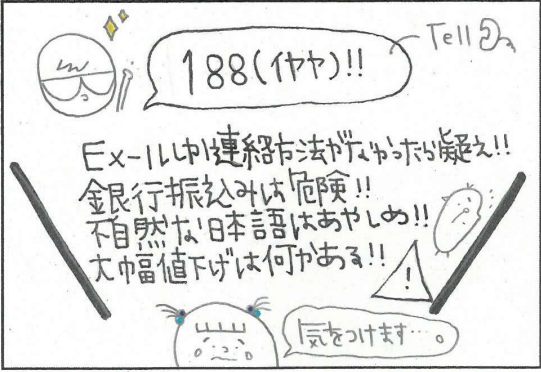 188(イヤヤ)!!
Tell
Eメールしか連絡方法がなかったら疑え!!
銀行振込みは危険!!
不自然な日本語はあやしめ!!
大幅値下げは何かある!!
!
気をつけます…。